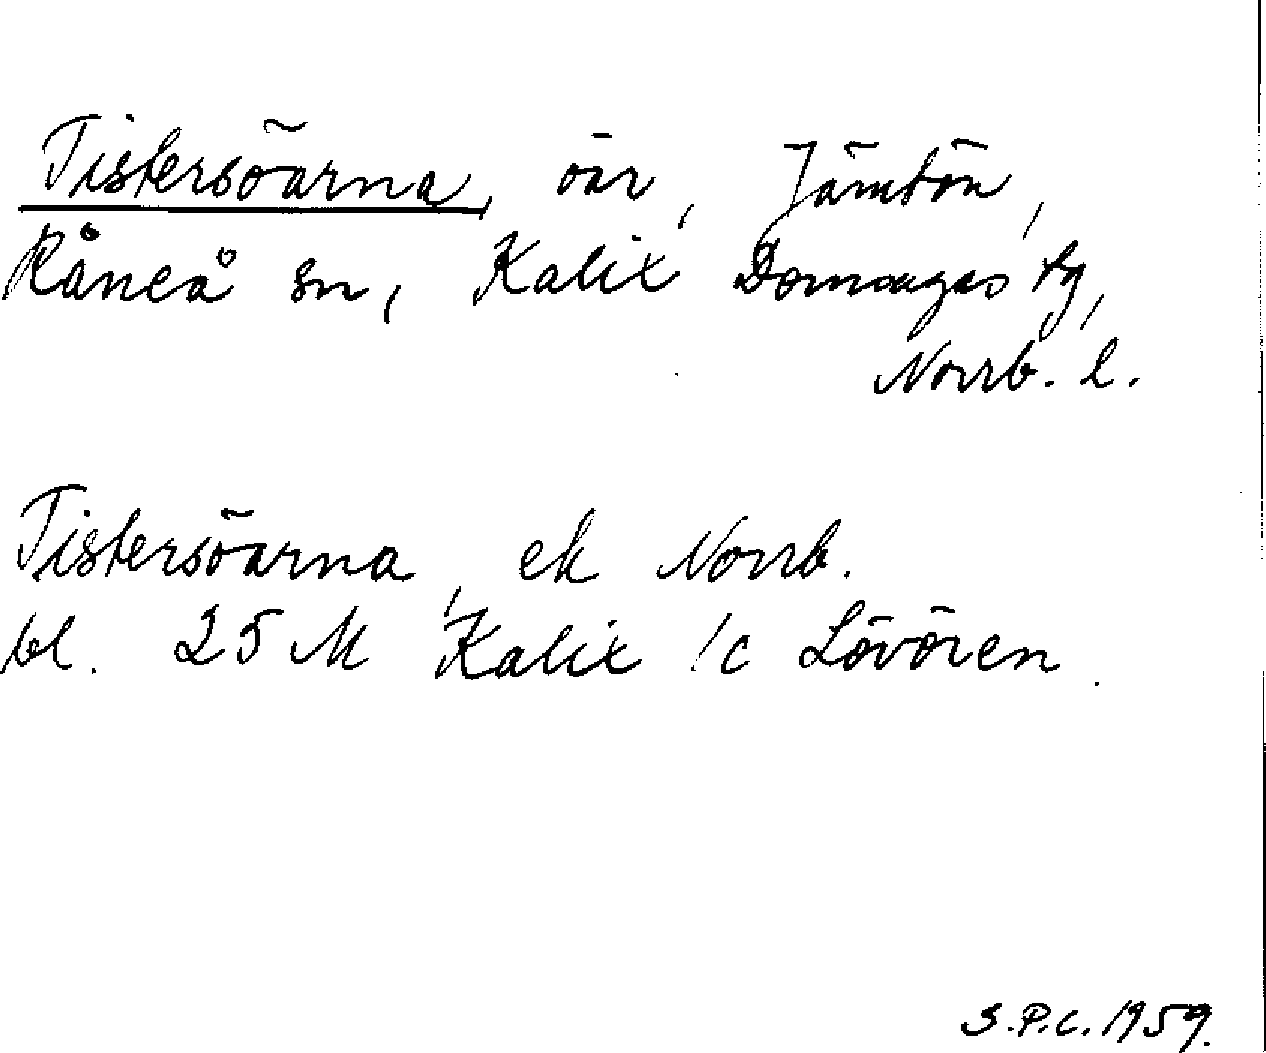 Tistersöarna, öar, Jämtön,
Råneå sn, Kalix Domsagas tg,
Norrb. l.
Tistersöarna, ek Norrb.
bl. 25 M Kalix 1c Lövören.
S.P.C. 1959.